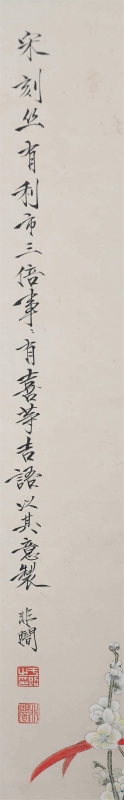 宋刻丝有利市三倍事〻有喜等吉語以其意製
非闇